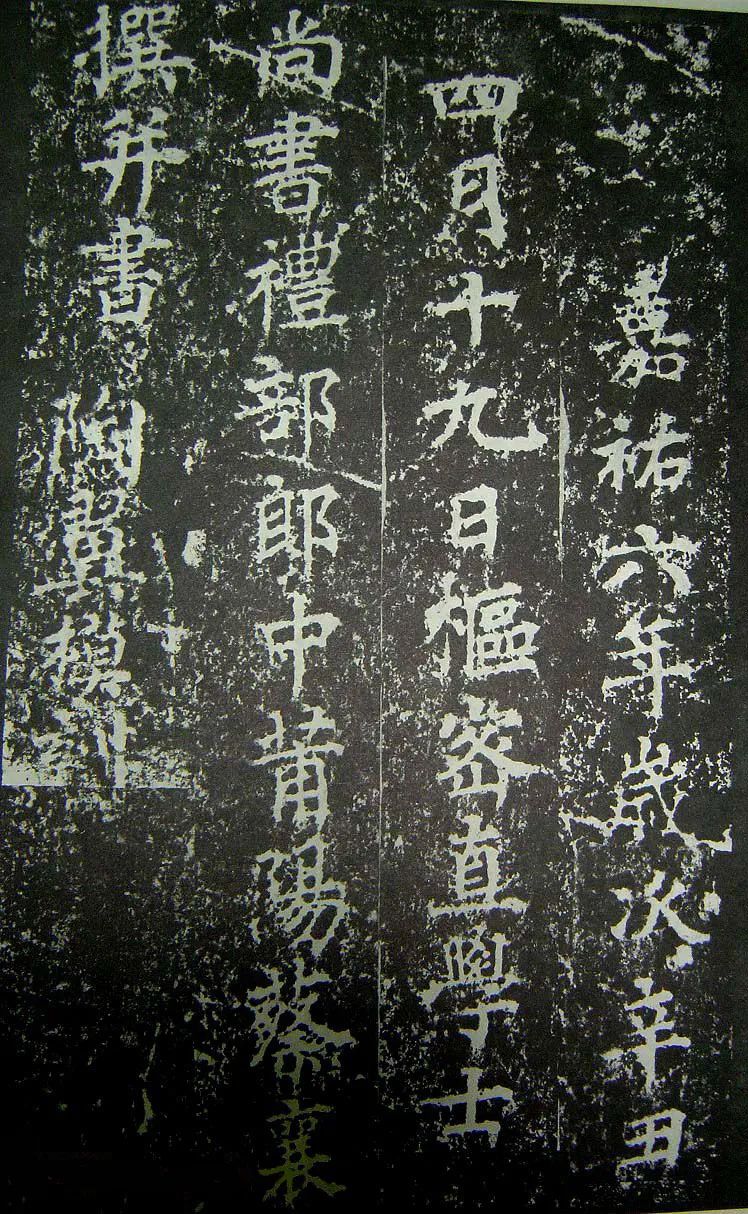 嘉祐六年歲次辛丑
四月十九日樞密直學士
尚書禮部郎中莆陽蔡襄
撰并書
陶翼模刻